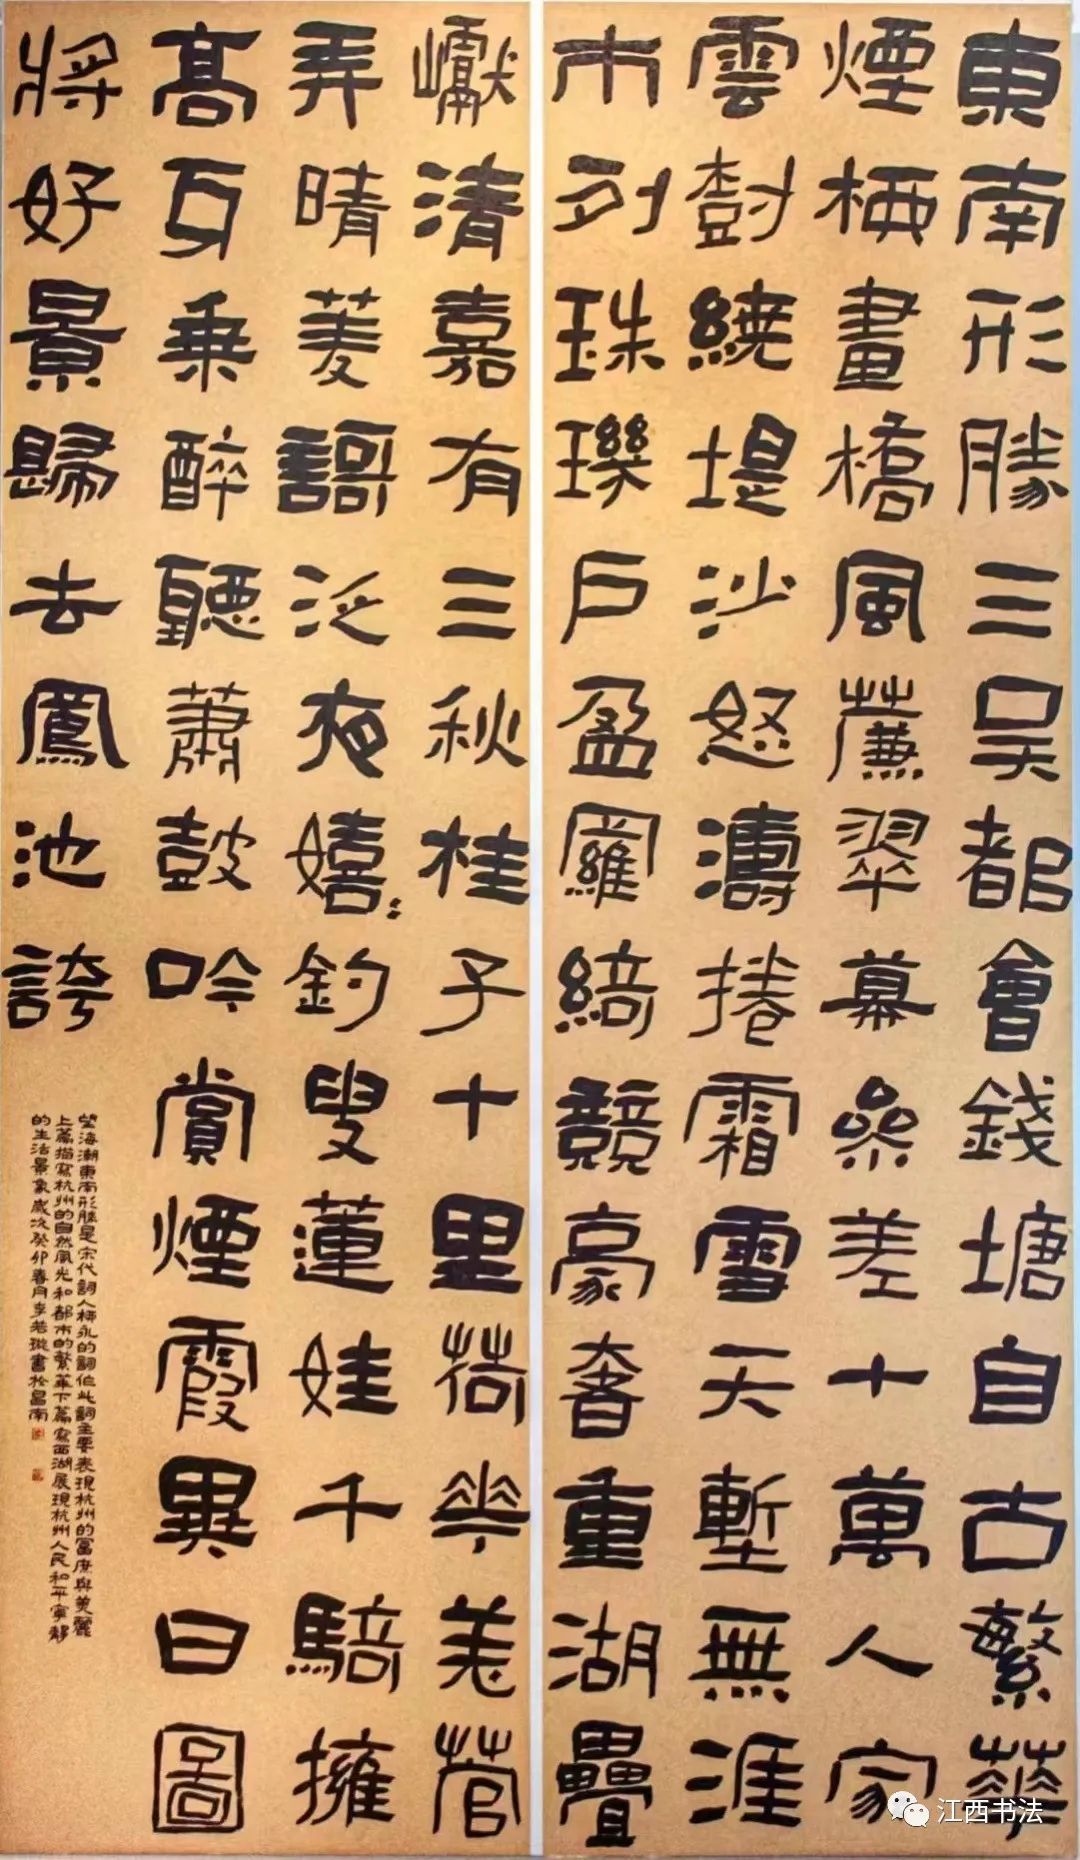 東南形勝三吴都會錢塘自古繁華
煙桺畫橋風薕翠幕叅差十萬人家
雲樹繞堤沙怒濤捲霜雪天塹無涯
市列珠璣户盈羅綺競豪奢重湖疊
巘清嘉有三秋桂子十里荷花羌菅
弄晴菱謌泛夜嬉〻釣叟蓮娃千騎擁
髙牙乗醉聽蕭鼓吟賞煙霞異日圖
將好景歸去鳳池誇
望海潮東南形勝是宋代詞人柳永的詞作此詞主要表現杭州的富庶與美麗
上篇描寫杭州的自然風光和都市的繁華下篇寫西湖展現杭州人民和平寧靜
的生活景象歲次癸卯春月李若璇書於昌南
江西书法